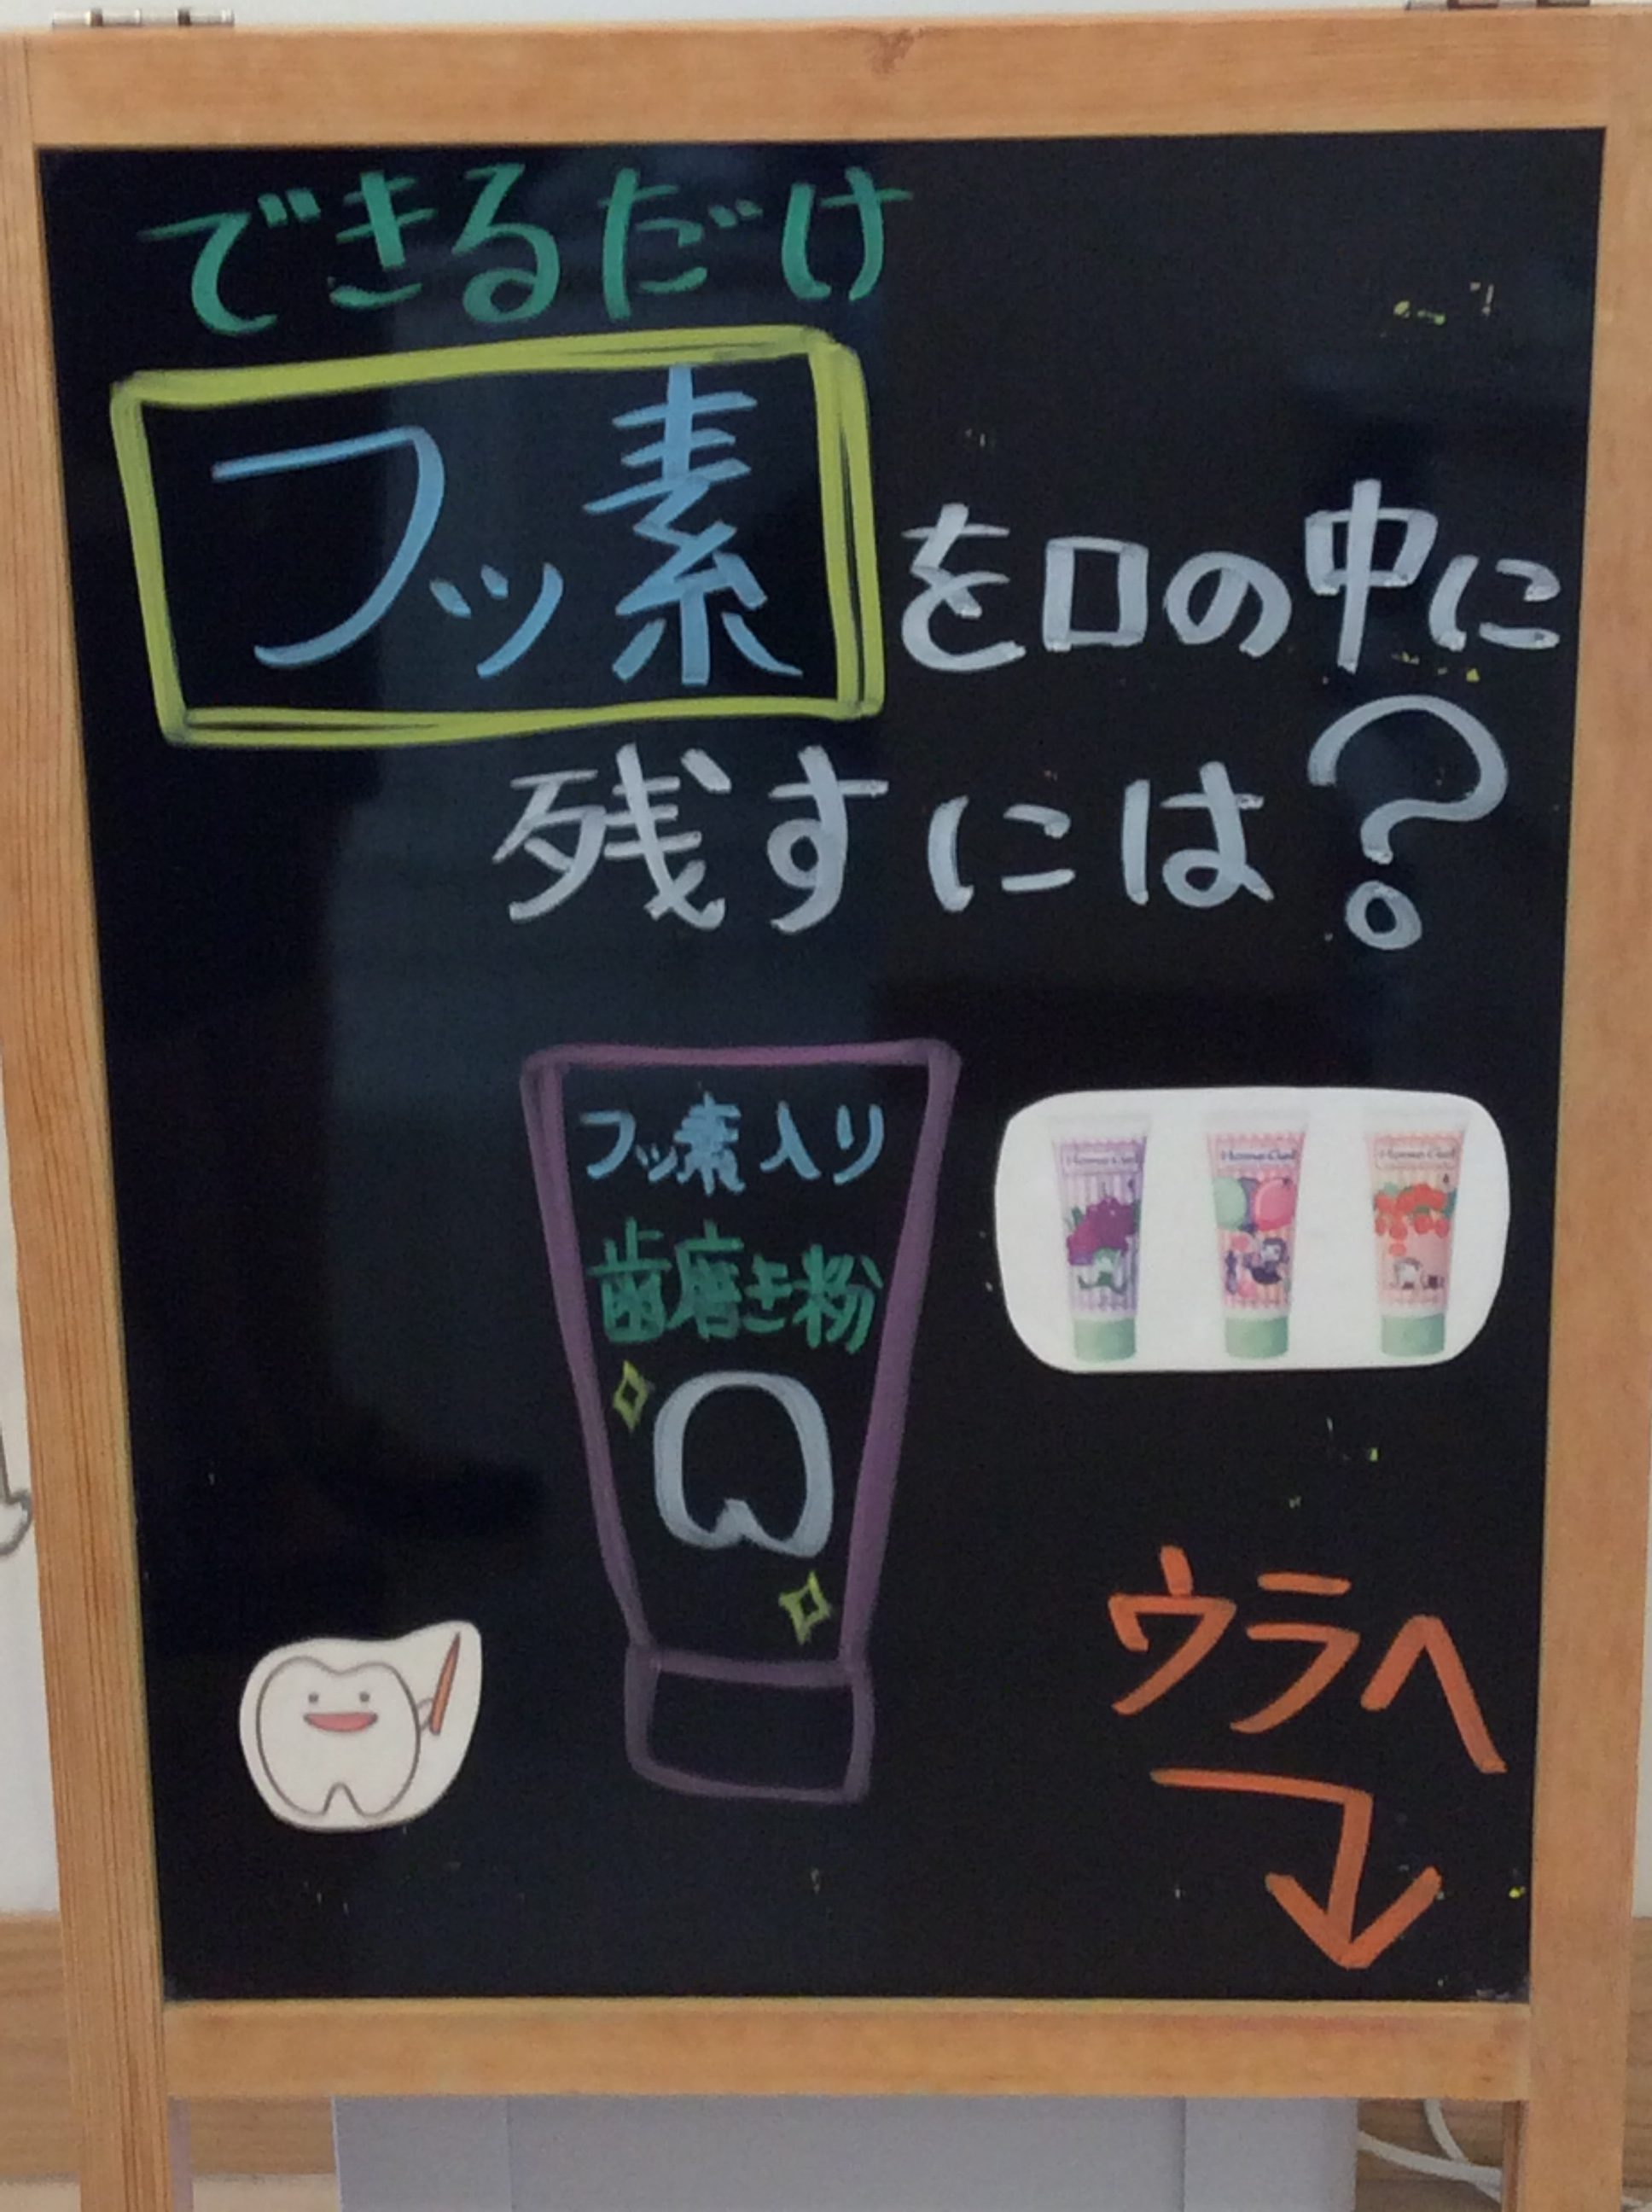 できるだけ
フッ素を口の中に
残すには?
フッ素入り
歯磨き粉
Home Gel
Home Gel
Home Gel
ウラへ